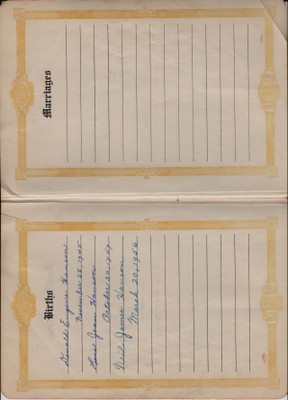 Births
Donald Eugene Hanson
November 28, 1945
Lois Jean Hanson
October 20, 1949
Neil James Hanson
March 20, 1956
Marriages